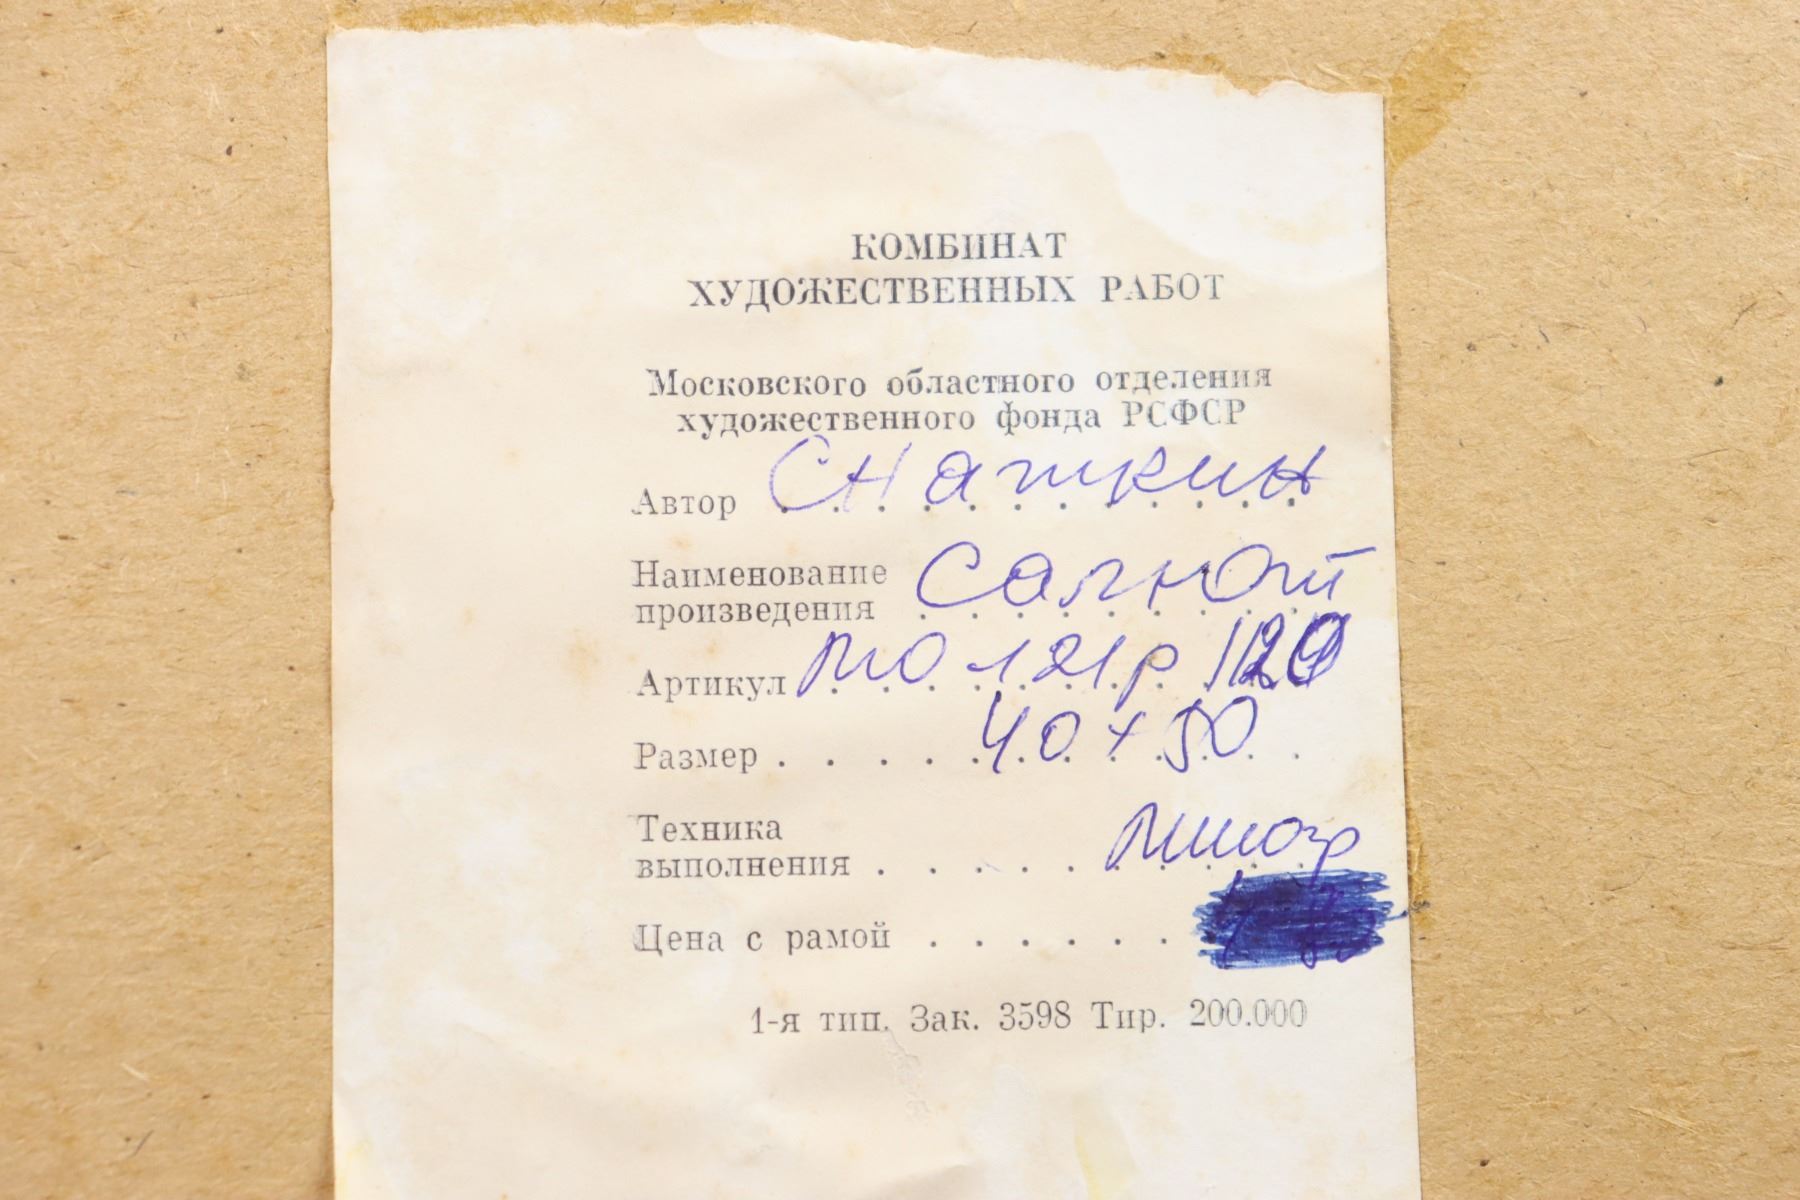 КОМБИНАТ
ХУДОЖЕСТВЕННЫХ РАБОТ
Московского областного отделения
художественного фонда РСФСР
Автор Снаткин
Наименование
произведения Салют
Артикул
Размер 40х50
Техника
выполнения
Цена с рамой
1-я тип. Зак. 3598 Тир. 200.000